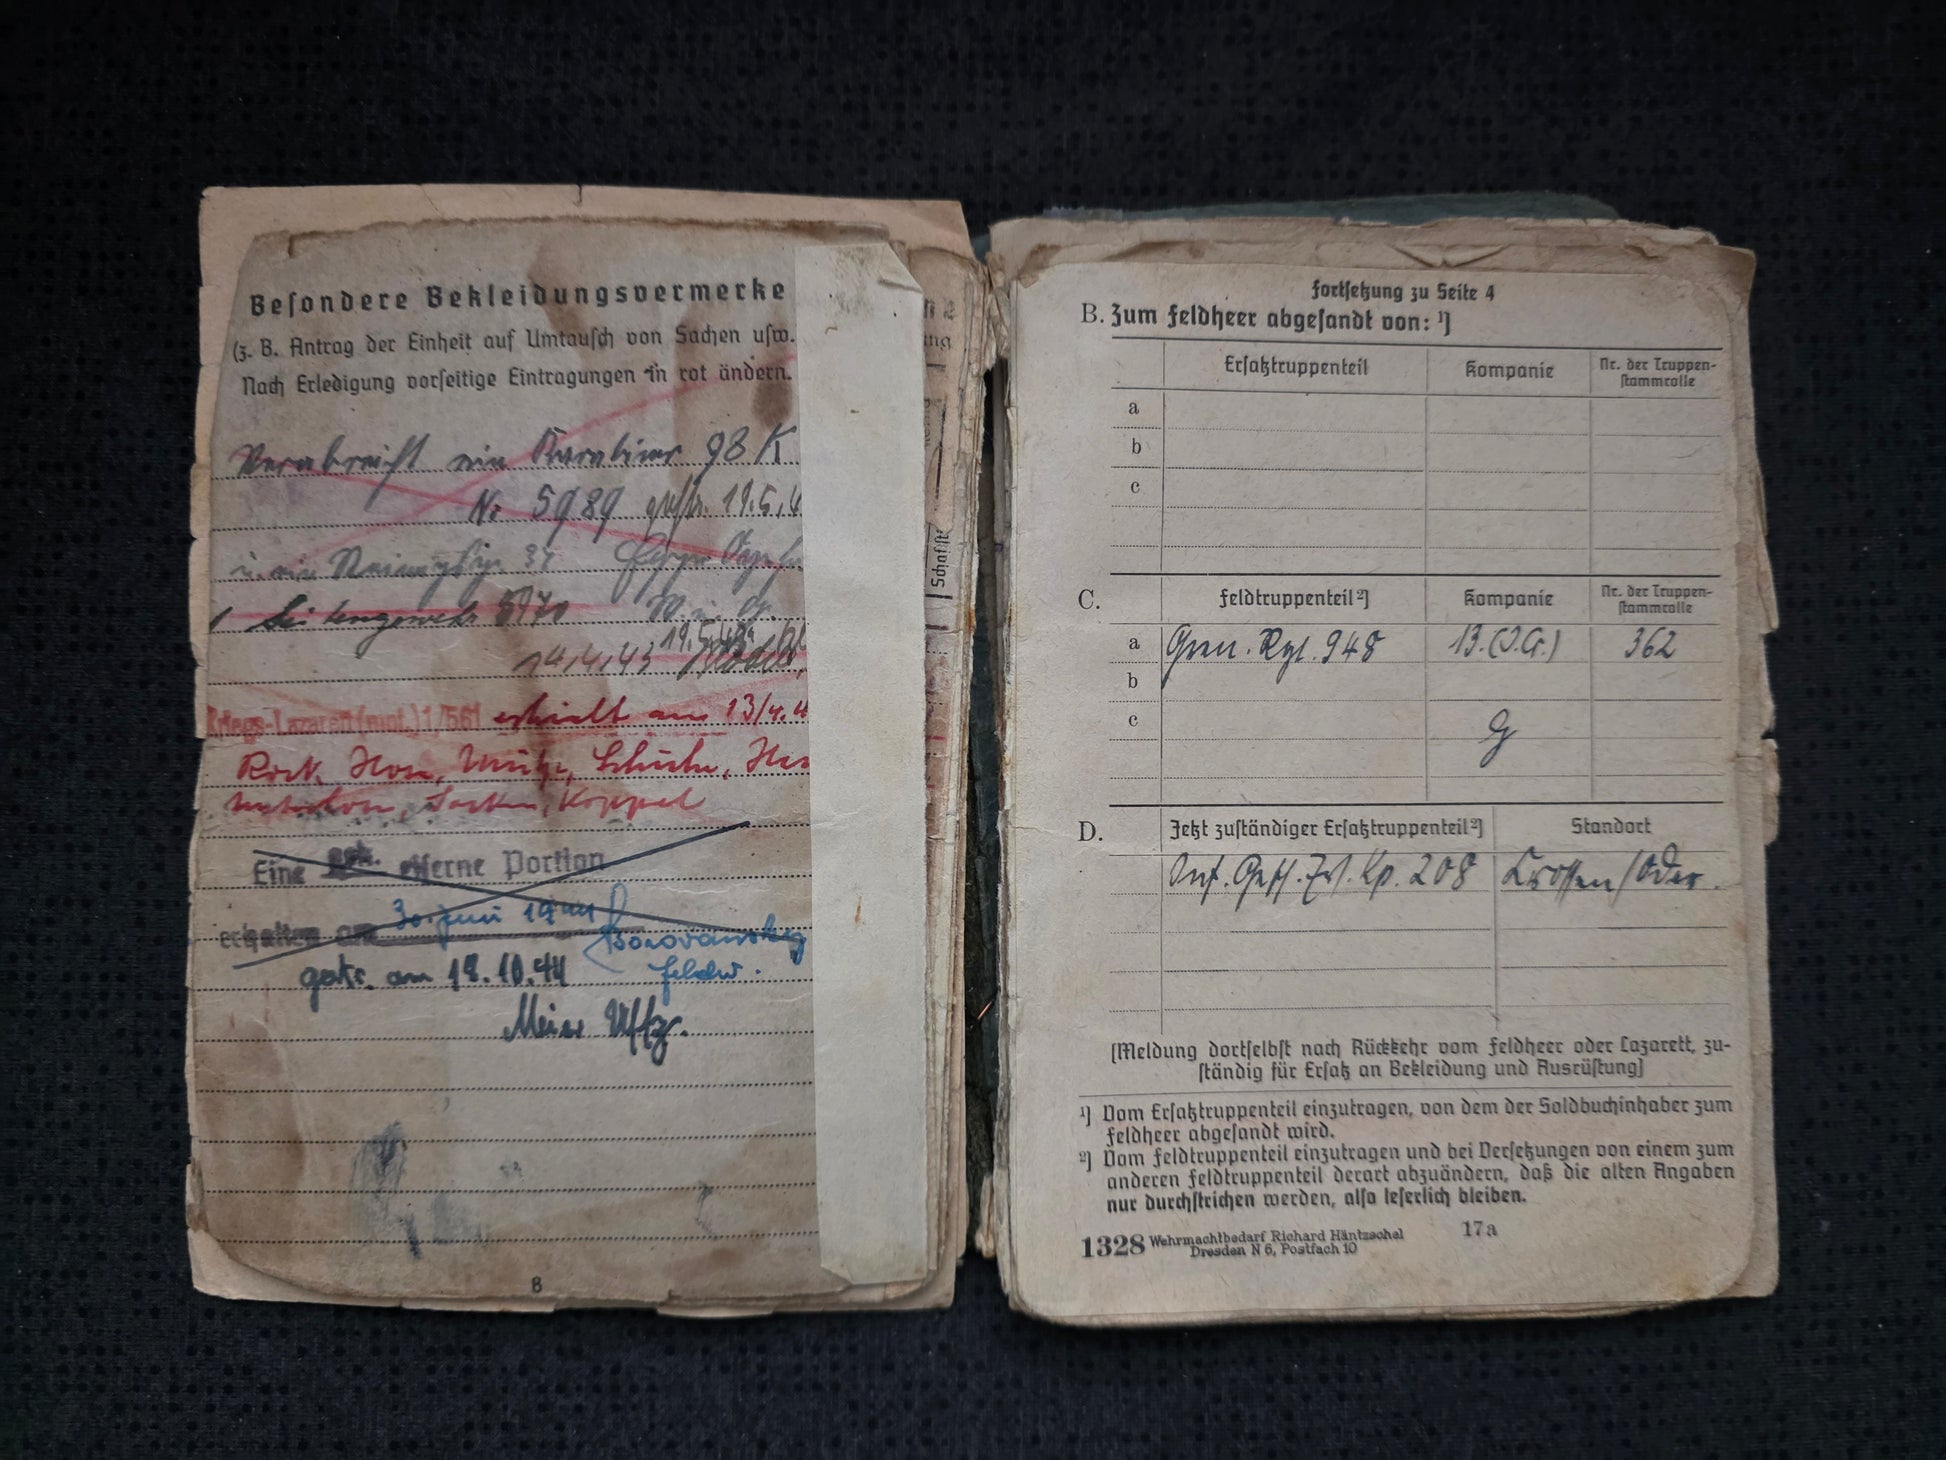 Besondere Bekleidungsvermerke
(z. B. Antrag der Einheit auf Umtausch von Sachen usw.
Nach Erledigung vorseitige Eintragungen in rot ändern.
Verabreicht ein Karabiner 98 K
Nr 5989 19.5.4
u. ein 34
1 Seitengewehr 5170
19.5.43
14.4.43
Kriegs-Lazarett (mot.) 1/561 erhielt am 13/4.4
Rock, Hose, Mütze, Schuhe,
Unterhose, Socken, Koppel
Eine gek. eiserne Portion
erhalten am 30. Juni 1944 Borovansky
gek. am 18.10.44 Feldw.
Meier Uffz.
8
Fortsetzung zu Seite 4
B. Zum Feldheer abgesandt von: ¹)
Ersatztruppenteil Kompanie Nr. der Truppen-
stammrolle
a
b
c
C. Feldtruppenteil ²) Kompanie Nr. der Truppen-
stammrolle
a Gren. Rgt. 948 13. (I.G.) 362
b
c
D. Jetzt zuständiger Ersatztruppenteil ²) Standort
Inf. Gesch. Ers. Kp. 208 Crossen/Oder.
(Meldung dortselbst nach Rückkehr vom Feldheer oder Lazarett, zu-
ständig für Ersatz an Bekleidung und Ausrüstung)
¹) Vom Ersatztruppenteil einzutragen, von dem der Soldbuchinhaber zum
Feldheer abgesandt wird.
²) Vom Feldtruppenteil einzutragen und bei Versetzungen von einem zum
anderen Feldtruppenteil derart abzuändern, daß die alten Angaben
nur durchstrichen werden, also leserlich bleiben.
1328 Wehrmachtbedarf Richard Häntzschel
Dresden N 6, Postfach 10
17a